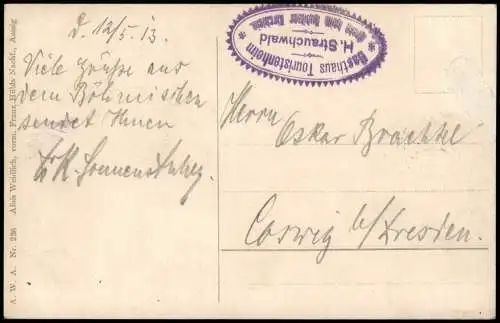 D. 12/5.13.
Viele Grüße aus
dem Böhmischen
sendet Ihnen
Gasthaus Touristenheim
H. Strauchwald
Herrn Oskar
Coswig b/Dresden.
A. W. A. Nr. 236 Alois Weidlich, vorm. Franz Hübls Nachf., Aussig